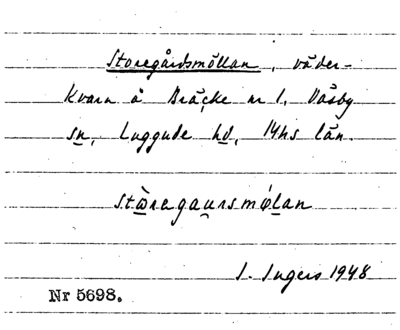 Storegårdsmöllan, väder-
kvarn å Bräcke nr 1, Väsby
sn, Luggude hd, Mhs län.
stωregaursmölan
I. Ingers 1948
Nr 5698.